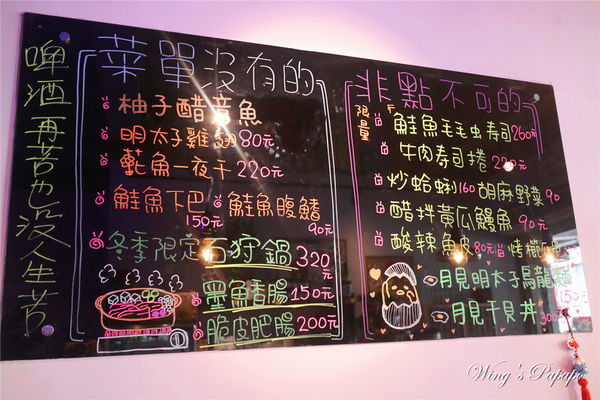 啤酒再苦也沒人生苦
菜單沒有的
柚子醋章魚
明太子雞翅 80元
魠魚一夜干 220元
鮭魚下巴 150元
鮭魚腹鰭 90元
冬季限定 石狩鍋 320元
墨魚香腸 150元
脆皮肥腸 200元
非點不可的
限量
鮭魚毛毛虫寿司 260元
牛肉寿司捲 220元
炒蛤蜊 160
胡麻野菜 90
醋拌黃瓜鰻魚 90元
酸辣魚皮 80元
月見明太子烏龍麵 150元
月見干貝丼 300元
Wing's Papapo